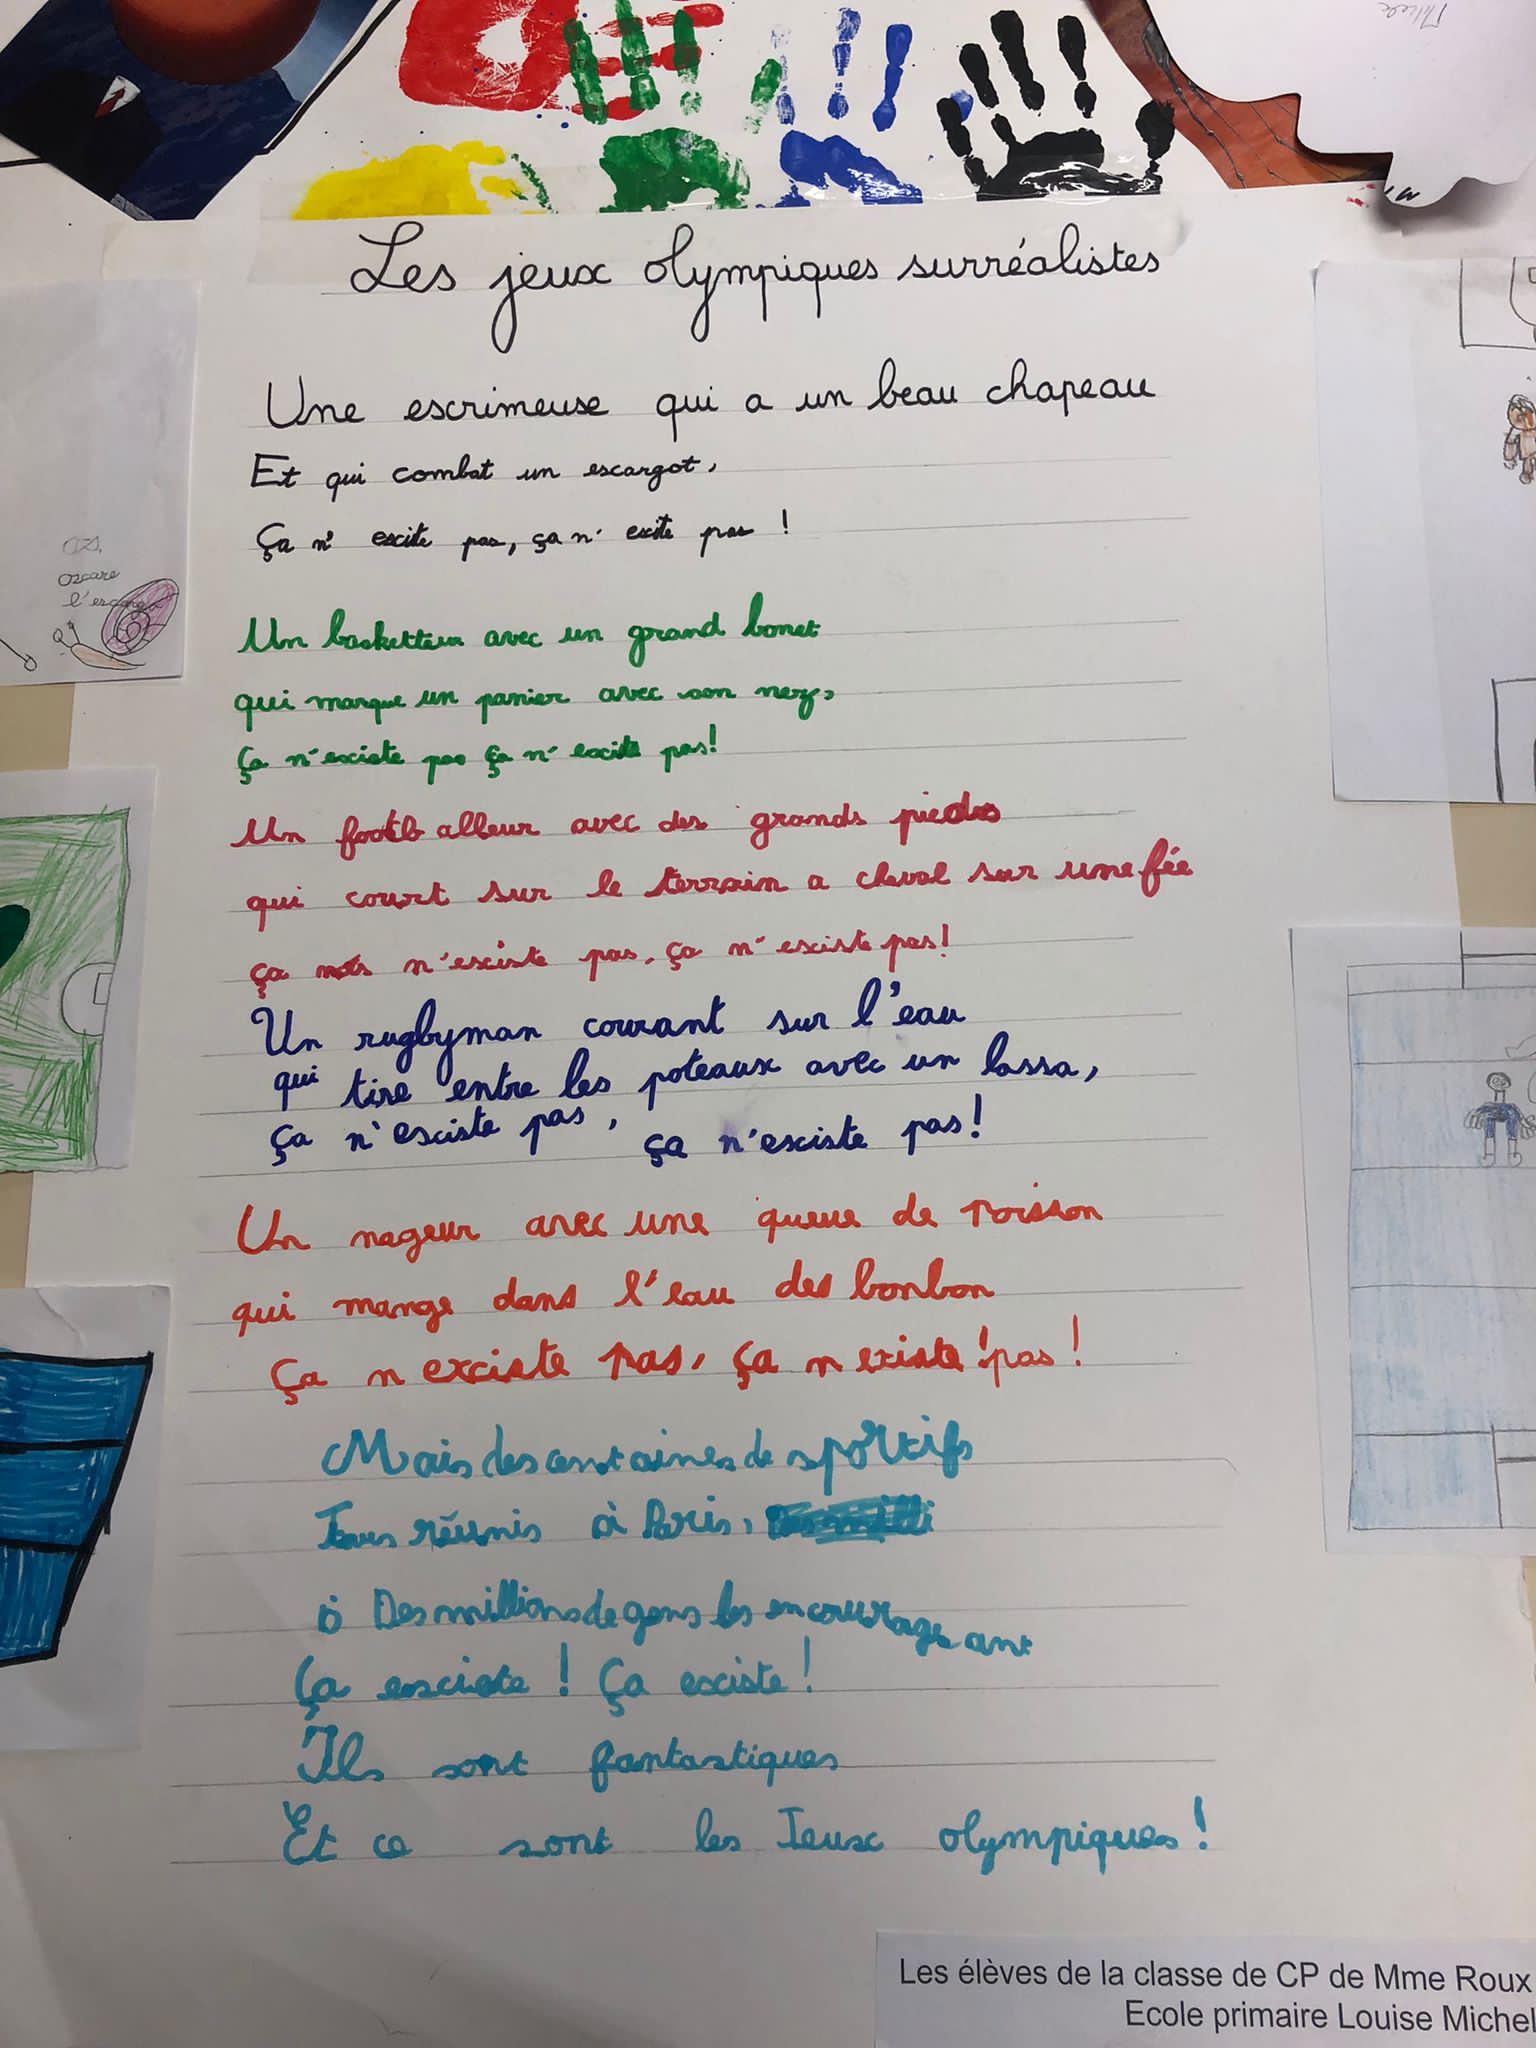 Les jeux olympiques surréalistes
Une escrimeuse qui a un beau chapeau
Et qui combat un escargot,
Ça n' escite pas, ça n' escite pas !
oscare
l'escargo
Un basketteur avec un grand bonet
qui marque un panier avec son nez,
Ça n'existe pas ça n' escite pas!
Un footb alleur avec des grands pieds
qui court sur le terrain a cheval sur une fée
ça n'esciste pas, ça n'esciste pas!
Un rugbyman courant sur l'eau
qui tire entre les poteaux avec un lasso,
ça n'esciste pas, ça n'esciste pas!
Un nageur avec une queue de poisson
qui mange dans l'eau des bonbon
Ça n exciste pas, ça n existe ! pas !
Mais des centaines de sportifs
Tous réunis à Paris,
Des millions de gens les encourageant
Ça esciste ! Ça esciste !
Ils sont fantastiques
Et ce sont les Jeux olympiques !
Les élèves de la classe de CP de Mme Roux
Ecole primaire Louise Michel